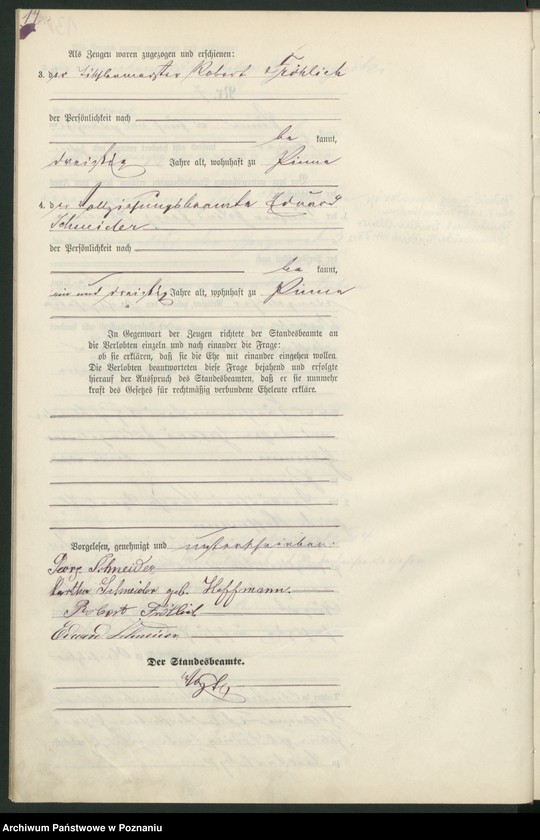 14
Als Zeugen waren zugezogen und erschienen:
3. der Tischlermeister Robert Fröhlich
der Persönlichkeit nach
be kannt,
dreißig Jahre alt, wohnhaft zu Pinne
4. der Vollziehungsbeamte Eduard
Schneider
der Persönlichkeit nach
be kannt,
ein und dreißig Jahre alt, wohnhaft zu Pinne
In Gegenwart der Zeugen richtete der Standesbeamte an
die Verlobten einzeln und nach einander die Frage:
ob sie erklären, daß sie die Ehe mit einander eingehen wollen.
Die Verlobten beantworteten diese Frage bejahend und erfolgte
hierauf der Ausspruch des Standesbeamten, daß er sie nunmehr
kraft des Gesetzes für rechtmäßig verbundene Eheleute erkläre.
Vorgelesen, genehmigt und unterschrieben.
Georg Schneider
Martha Schneider geb. Hoffmann.
Robert Fröhlich
Eduard Schneider
Der Standesbeamte.
Archiwum Państwowe w Poznaniu